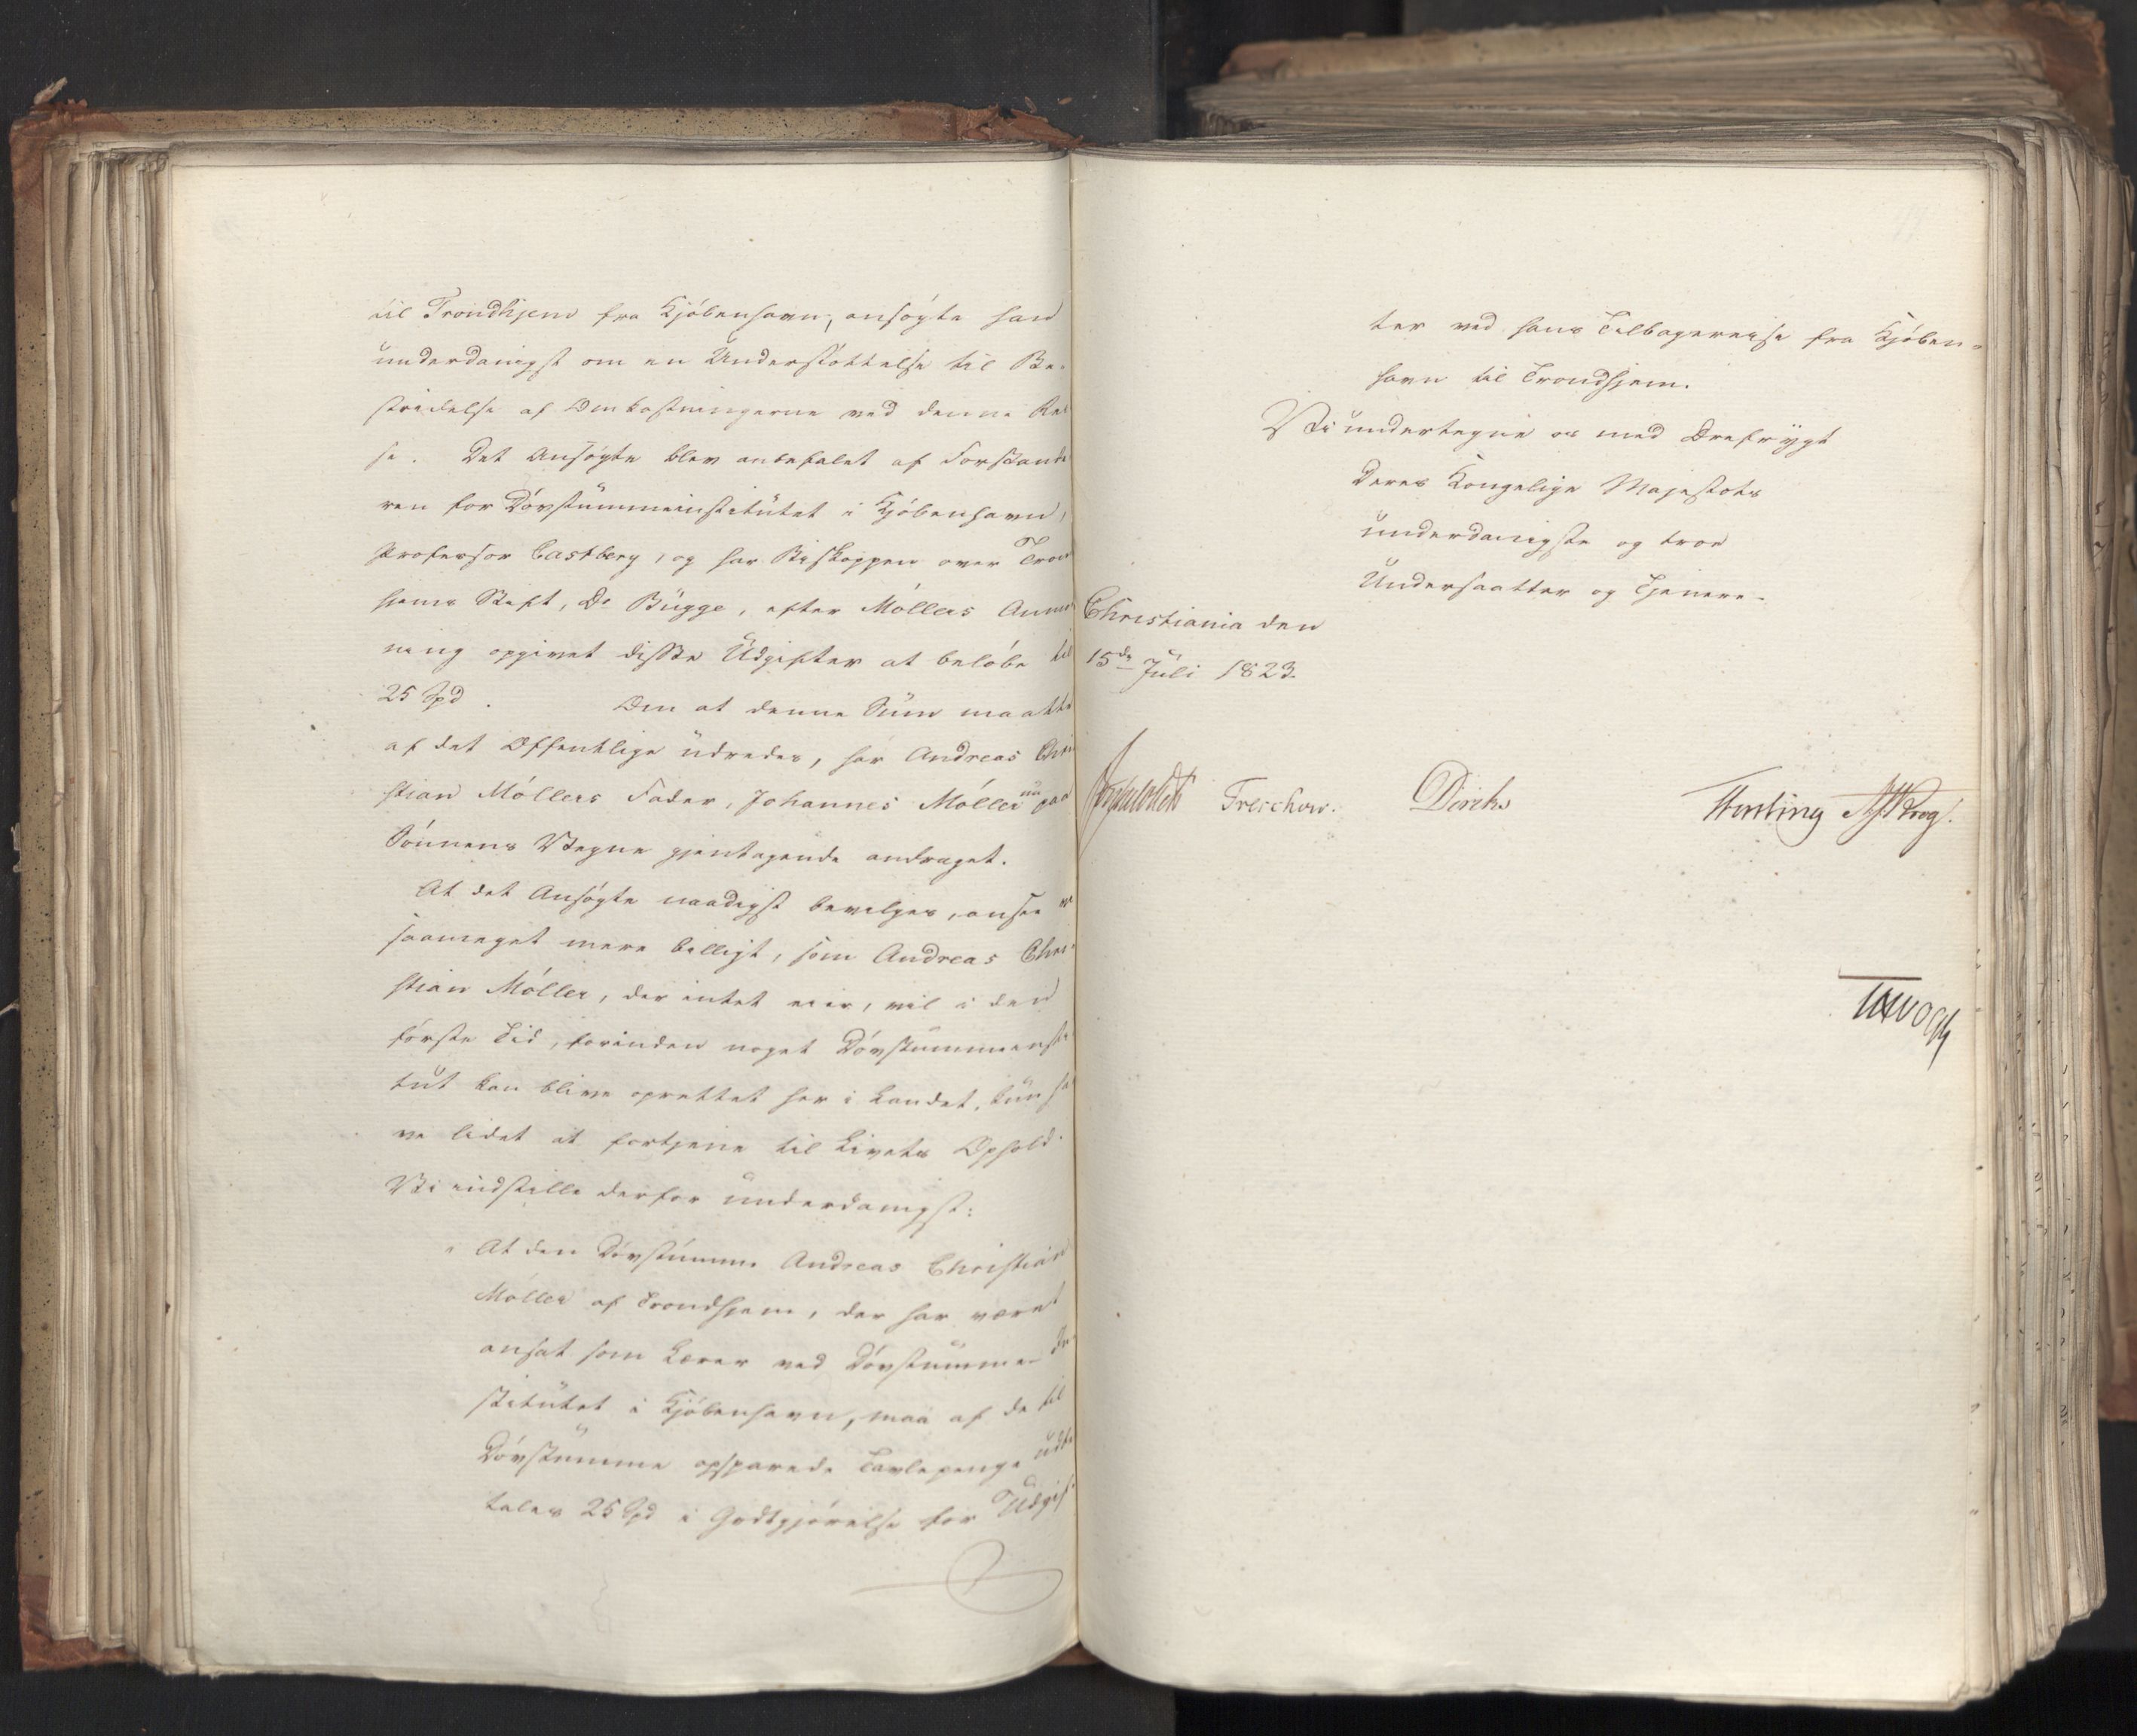 til Trondhjem fra Kjöbenhavn, ansögte han
underdanigst om en Understöttelse til Be-
stridelse af Omkostningerne ved denne Rei
se. Det Ansögte blev anbefalet af Forstande
ren for Dövstummeinstitutet i Kjöbenhavn,
Professor Castberg, og har Biskoppen over Trond
hjems Stift, Dr Bugge, efter Möllers Anme
ning opgivet disse Udgifter at belöbe til
25 Spd. Om at denne Sum maatte
af det Offentlige udredes, har Andreas Chri
stian Möllers Fader, Johannes Möller nu paa
Sönnens Vegne gjentagende andraget.
At det Ansögte naadigst bevilges, ansee vi
saameget mere billigt, som Andreas Chri-
stian Möller, der intet eier, vil i den
förste Tid, forinden noget Dövstummeinsti
tut kan blive oprettet her i Landet, kun ha
ve lidet at fortjene til Livets Ophold.
Vi indstille derfor underdanigst:
At den Dövstumme Andreas Christian
Möller af Trondhjem, der har været
ansat som Lærer ved Dövstumme-In
stitutet i Kjöbenhavn, maa af de til
Dövstumme opsparede Tavlepenge udbe
tales 25 Spd i Godtgjörelse for Udgif
ter ved hans Tilbagereise fra Kjöben-
havn til Trondhjem.
Vi undertegne os med Ærefrygt
Deres Kongelige Majestæts
underdanigste og troe
Undersaatter og Tjenere.
Christiania den
15de Juli 1823.
Treschow. Diriks Krog.